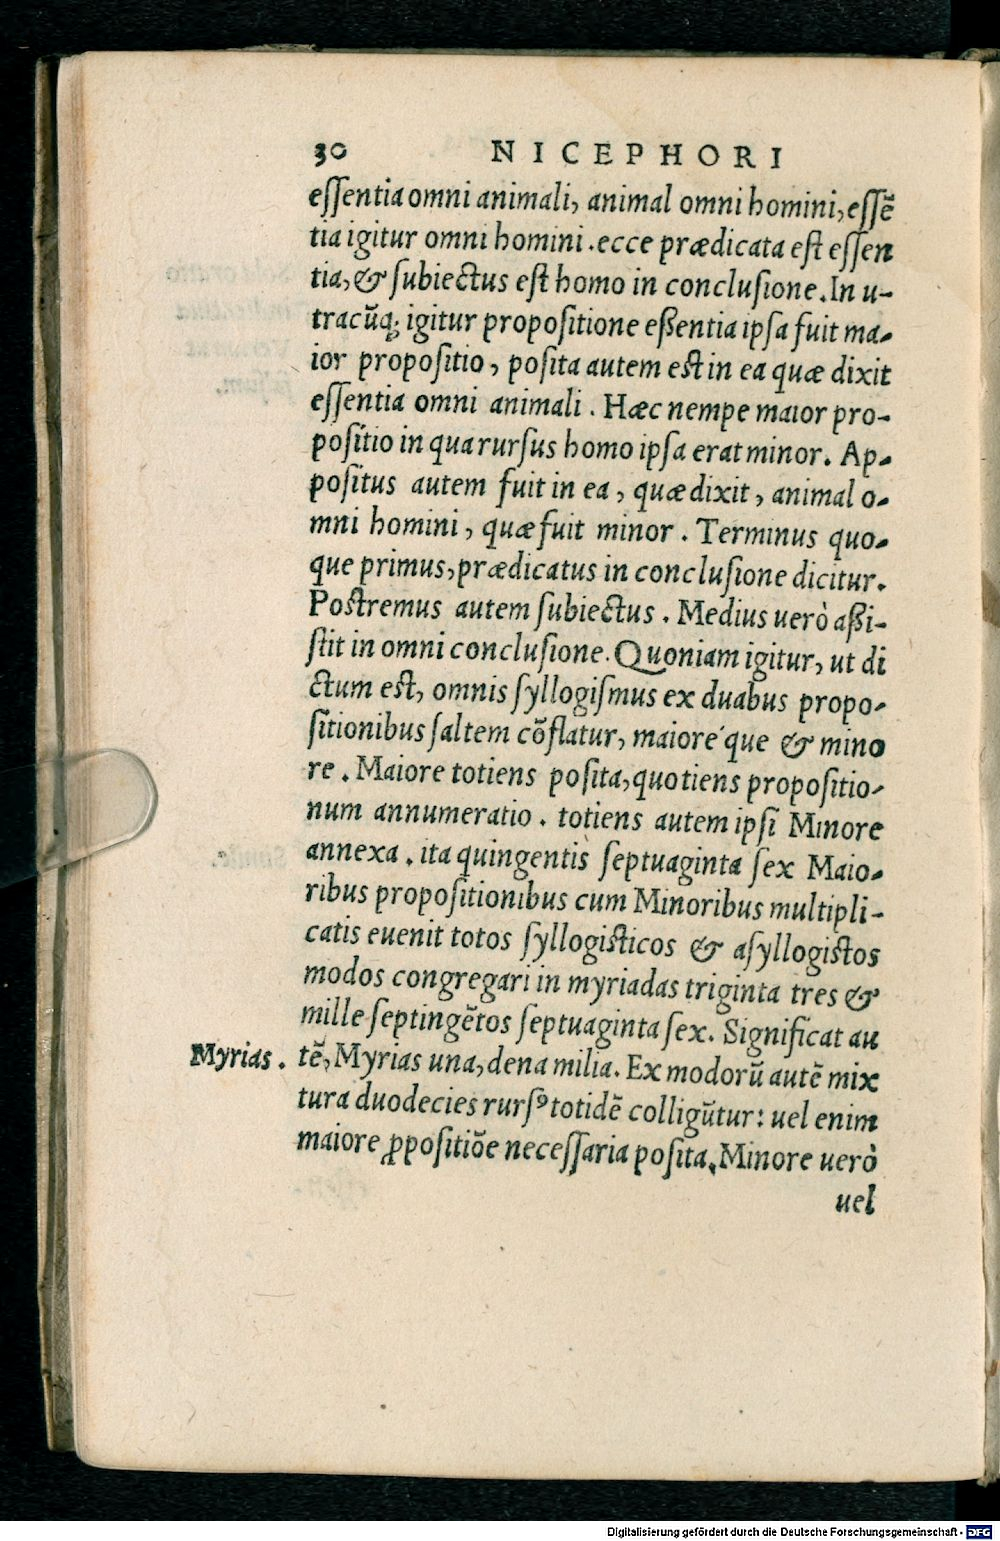 30 NICEPHORI
eſſentia omni animali, animal omni homini, eſſẽ
tia igitur omni homini. ecce prædicata eſt eſſen
tia, & ſubiectus eſt homo in concluſione. In u-
tracũq; igitur propoſitione eßentia ipſa fuit ma-
ior propoſitio, poſita autem est in ea quæ dixit
eſſentia omni animali. Hæc nempe maior pro-
poſitio in qua rurſus homo ipſa erat minor. Ap-
poſitus autem fuit in ea, quæ dixit, animal o-
mni homini, quæ fuit minor. Terminus quo-
que primus, prædicatus in concluſione dicitur.
Postremus autem ſubiectus. Medius uerò aßi-
ſtit in omni concluſione. Quoniam igitur, ut di
ctum est, omnis ſyllogiſmus ex duabus propo-
ſitionibus ſaltem cõflatur, maiore´que & mino
re. Maiore totiens poſita, quotiens propoſitio-
num annumeratio. totiens autem ipſi Minore
annexa. ita quingentis ſeptuaginta ſex Maio-
ribus propoſitionibus cum Minoribus multipli-
catis euenit totos ſyllogiſticos & aſyllogiſtos
modos congregari in myriadas triginta tres &
mille ſeptingẽtos ſeptuaginta ſex. Significat au
Myrias. tẽ, Myrias una, dena milia. Ex modorũ autẽ mix
tura duodecies rurſꝰ totidẽ colligũtur: uel enim
maiore ꝓpoſitiõe neceſſaria poſita, Minore uerò
uel
Digitalisierung gefördert durch die Deutsche Forschungsgemeinschaft - DFG